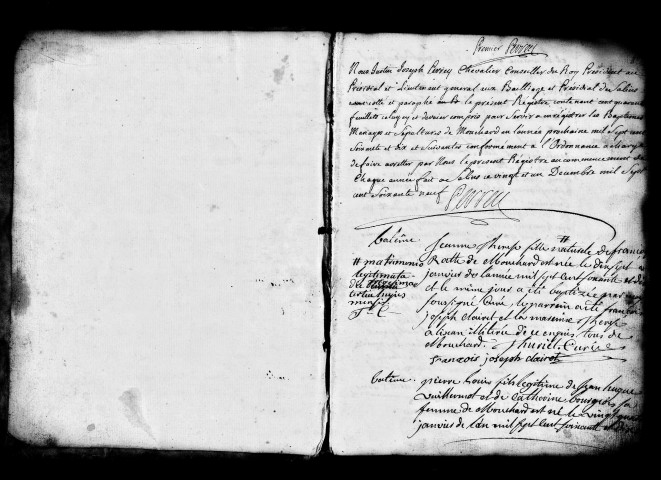 Premier Perrey
Nous Justin Joseph Perrey Chevalier Conseiller du Roy President au
Présidial et Lieutenant general aux Bailliage et Présidial de Salins
avons cotté et paraphé le present Registre contenant cent quarante
feuillets celuy cy et dernier compris pour servir a enregistrer les Baptemes
Mariages et Sepultures de Mouchard en l'année prochaine mil sept cent
Soixante et dix et Suivantes conformement a l'Ordonnance a charge
de faire par Nous le present Registre au commencement de
Chaque année fait a Salins ce vingt et un Decembre mil Sept
cent Soixante neuf Perrey
batême Jeanne therese fille # naturelle de
# matrimonio Ratte de Mouchard est née le dix sept
legitimata janvier de l'année mil sept cent soixante et dix
et le même jour a été baptizée par moy
soussigné Curé, le parrain a été françois
joseph clairet et la maraine therese
illitérée de ce enquis tous de
Mouchard. thuriet. Curé
francois joseph clairet
bateme pierre Louis fils legitime de jean hugue
Vuillemot et de Catherine bourgeois sa
femme de Mouchard est né le vingt
janvier de l'an mil sept cent soixante et dix